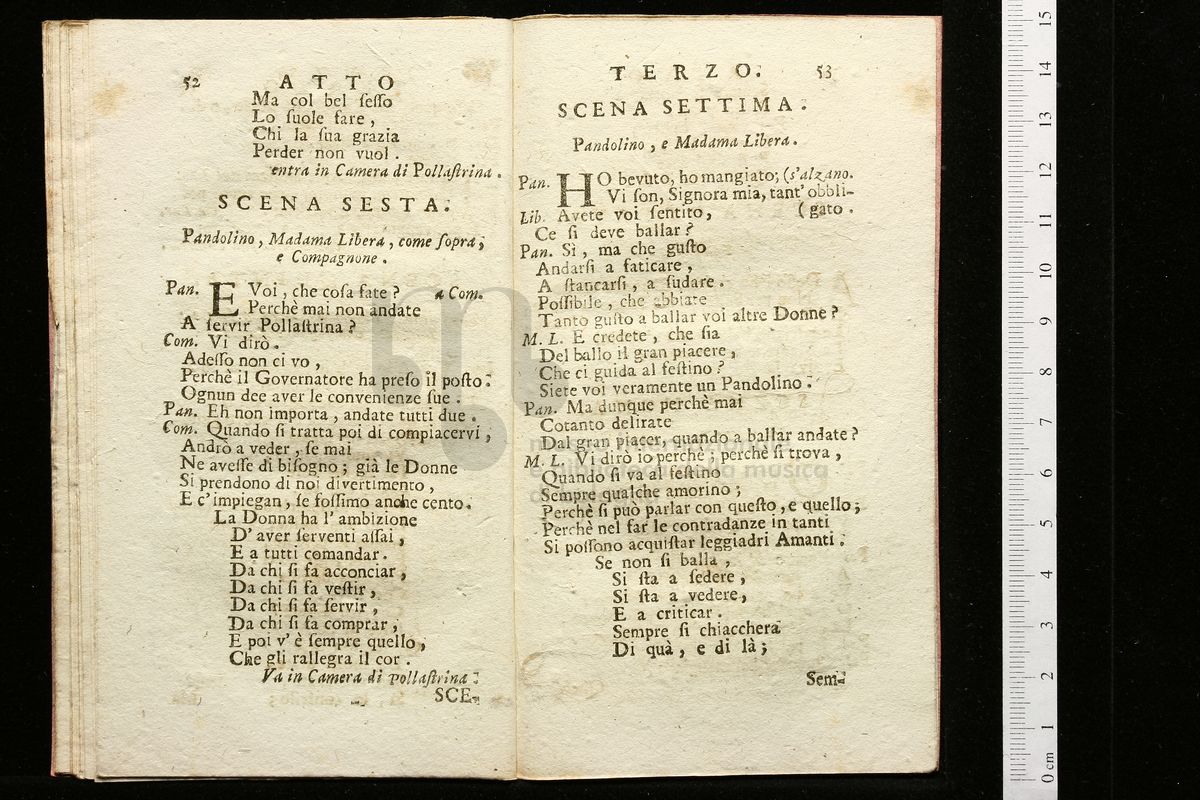 52 ATTO
Ma col bel ſeſſo
Lo ſuole fare ,
Chi la ſua grazia
Perder non vuol .
entra in Camera di Pollaſtrina .
SCENA SESTA.
Pandolino , Madama Libera , come ſopra ,
e Compagnone .
Pan. E Voi , che coſa fate ? a Com.
Perchè mai non andate
A ſervir Pollaſtrina ?
Com. Vi dirò .
Adeſſo non ci vo ,
Perchè il Governatore ha preſo il poſto :
Ognun dee aver le convenienze ſue .
Pan. Eh non importa , andate tutti due .
Com. Quando ſi tratta poi di compiacervi ,
Andrò a veder , ſe mai
Ne aveſſe di biſogno ; già le Donne
Si prendono di noi divertimento ,
E c' impiegan , ſe foſſimo anche cento .
La Donna ha l' ambizione
D' aver ſerventi aſſai ,
E a tutti comandar .
Da chi ſi fa acconciar ,
Da chi ſi fa veſtir ,
Da chi ſi fa ſervir ,
Da chi ſi fa comprar ,
E poi v' è ſempre quello ,
Che gli rallegra il cor .
Va in Camera di pollaſtrina .
SCE-
TERZO. 53
SCENA SETTIMA.
Pandolino , e Madama Libera .
Pan. HO bevuto, ho mangiato; (s'alzano.
Vi ſon, Signora mia, tant' obbli-
Lib. Avete voi ſentito, (gato .
Ce ſi deve ballar ?
Pan. Sì , ma che guſto
Andarſi a faticare ,
A ſtancarſi , a ſudare .
Poſſibile , che abbiate
Tanto guſto a ballar voi altre Donne ?
M. L. E credete , che ſia
Del ballo il gran piacere ,
Che ci guida al feſtino ?
Siete voi veramente un Pandolino .
Pan. Ma dunque perchè mai
Cotanto delirate
Dal gran piacer, quando a ballar andate ?
M. L. Vi dirò io perchè ; perchè ſi trova ,
Quando ſi va al feſtino
Sempre qualche amorino ;
Perchè ſi può parlar con queſto , e quello ;
Perchè nel far le contradanze in tanti
Si poſſono acquiſtar leggiadri Amanti .
Se non ſi balla ,
Si ſta a ſedere ,
Si ſta a vedere ,
E a criticar .
Sempre ſi chiacchera
Di quà , e di là ;
Sem-
0 cm 1 2 3 4 5 6 7 8 9 10 11 12 13 14 15